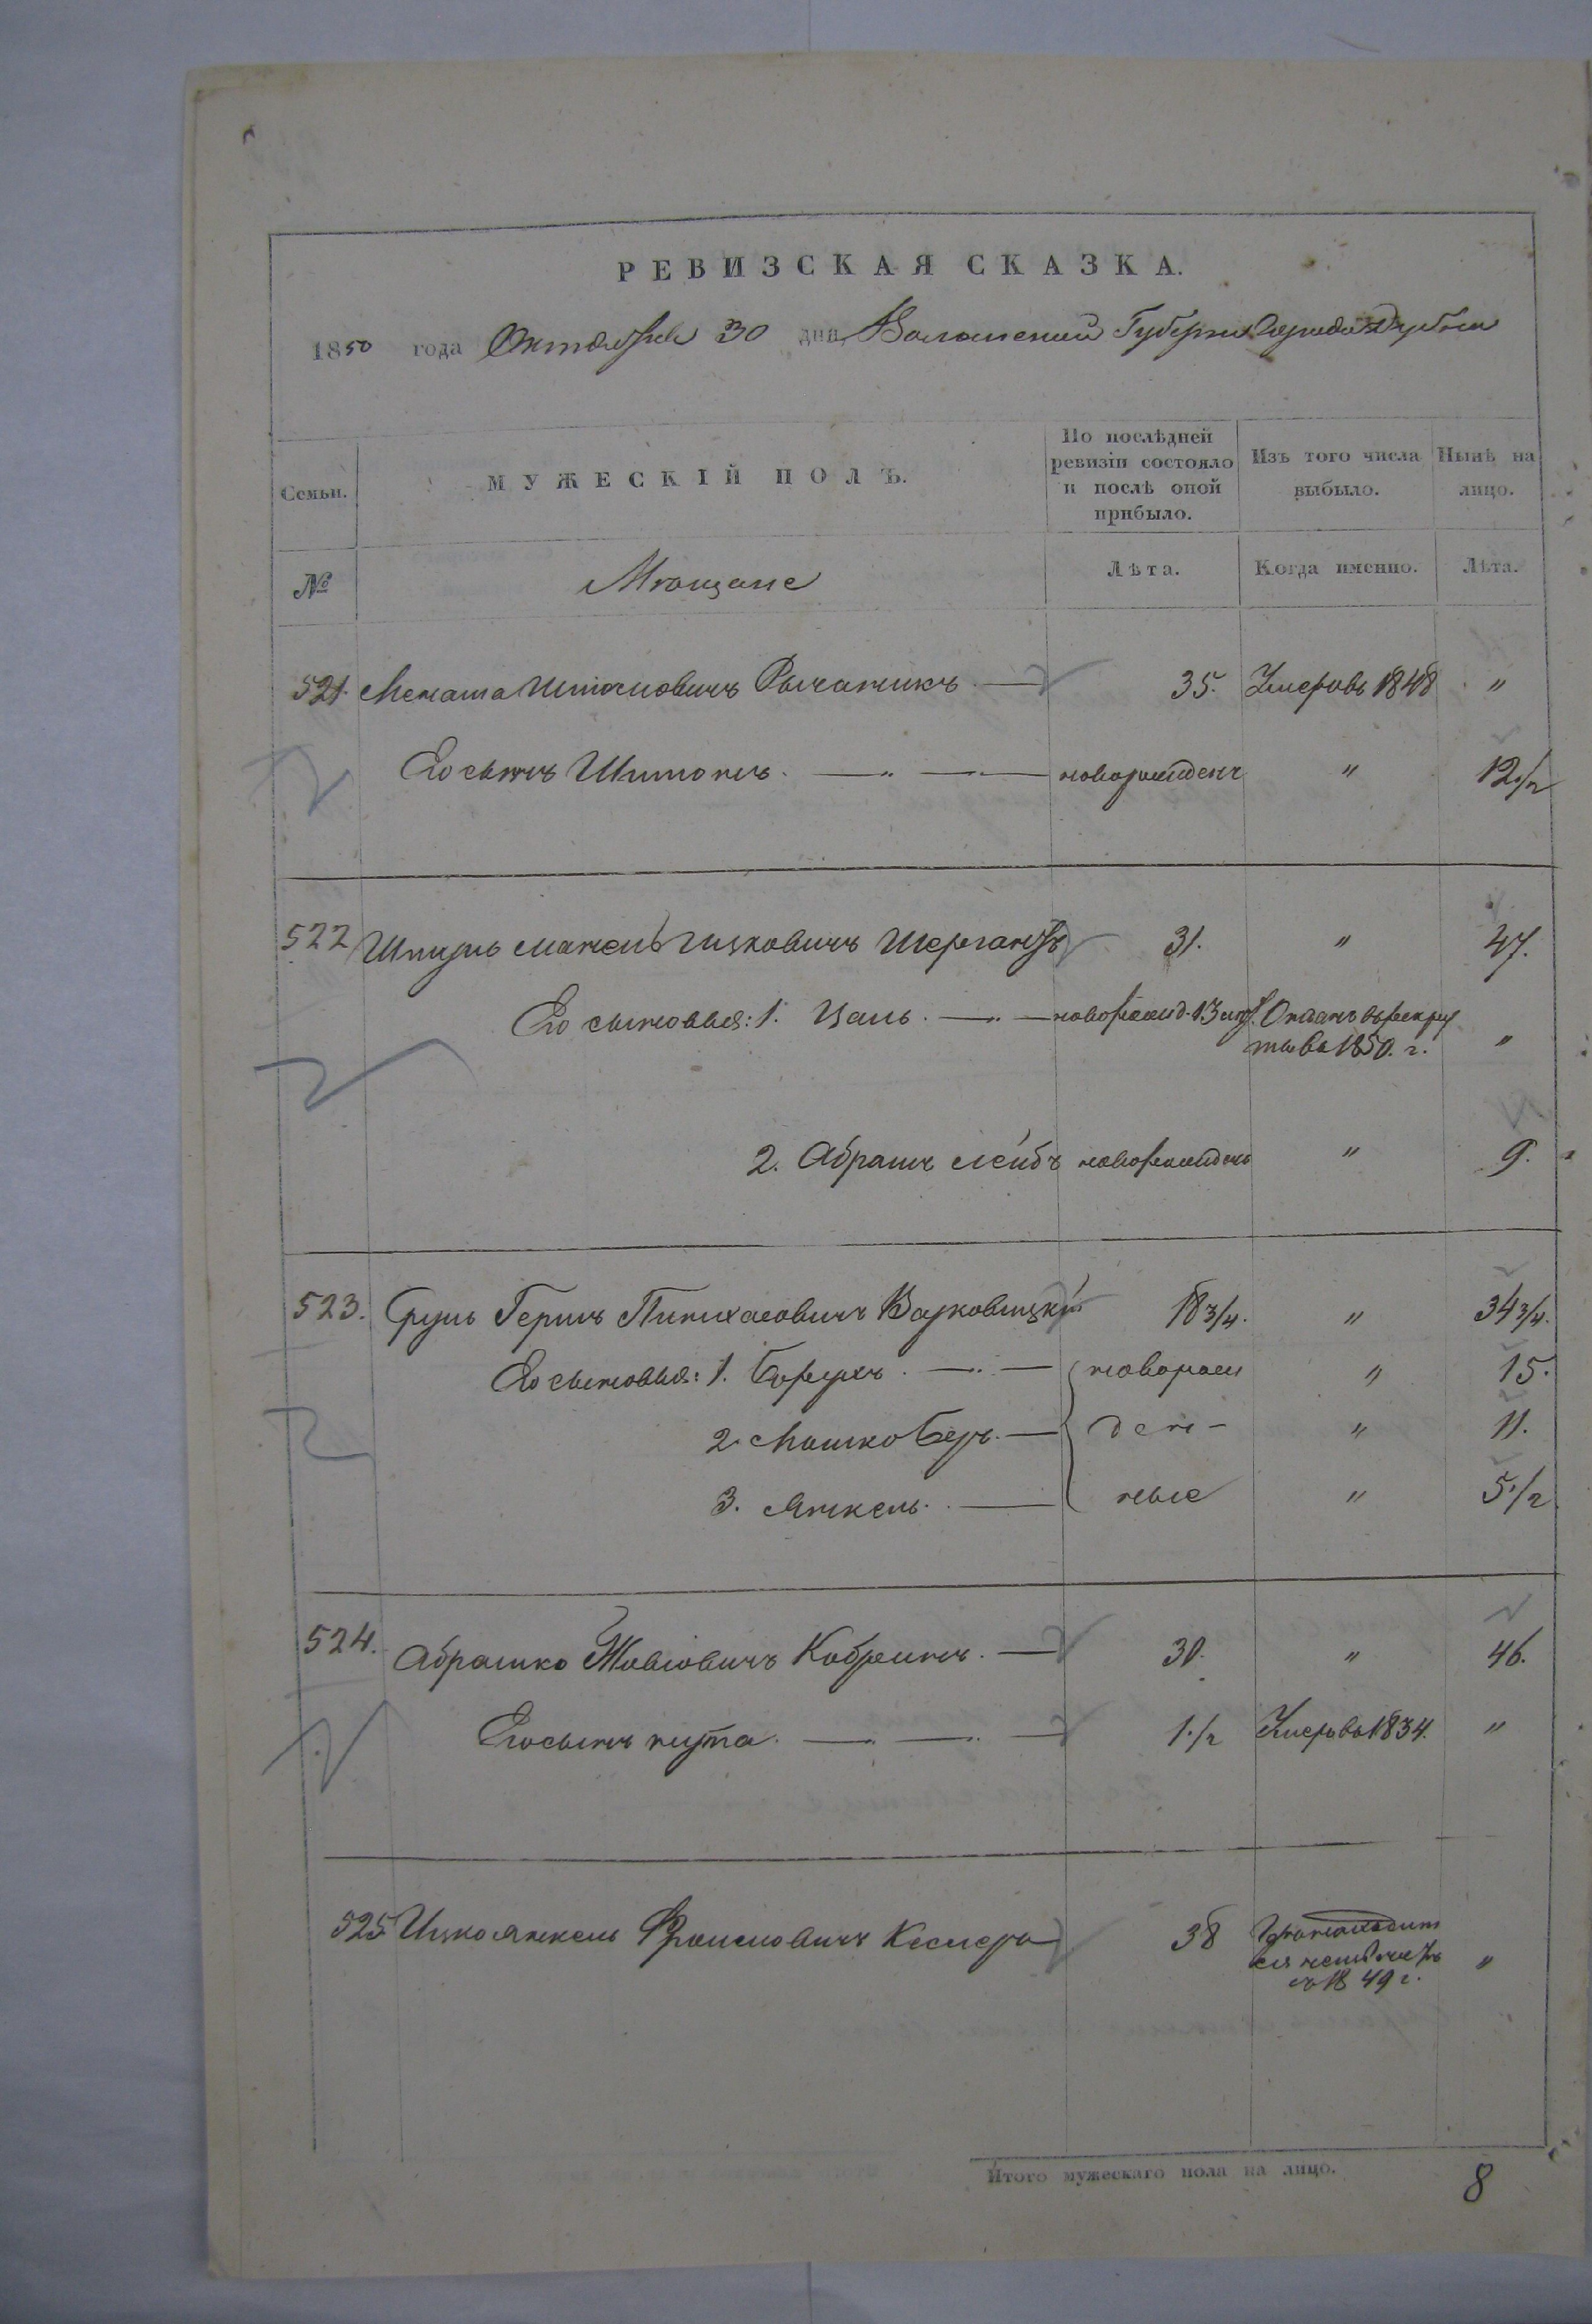 РЕВИЗСКАЯ СКАЗКА.
1850 года Октября 30 дня Волынской Губернии Города Дубна
Семьи. МУЖЕСКІЙ ПОЛЪ. По послѣдней ревизіи состояло и послѣ оной прибыло. Изъ того числа выбыло. Нынѣ на лицо.
№ Мѣщане Лѣта. Когда именно. Лѣта.
521. Менаша Шимоновичъ 35. Умеръ въ 1848 "
Его сынъ Шимонъ. новорожденъ " 12 1/2
522 Шмуль Ицковичъ 31. " 47.
Его сыновья: 1. новорожд. 13 Отданъ въ рекру
ты въ 1850. г. "
2. Абрамъ Лейбъ новорожденъ " 9.
523. Сруль Гершъ Пинхасовичъ 18 3/4. " 34 3/4.
Его сыновья: 1. Борухъ новорож " 15.
2. Мошко Беръ. ден- " 11.
3. Янкель. ные " 5 1/2
524. Абрашко Кобринъ. 30. " 46.
Его сынъ Нута. 1 1/2 Умеръ въ 1834. "
525 Ицко Янкель Фроимовичъ Кеслеръ 38
съ 1849 г. "
Итого мужескаго пола на лицо. 8